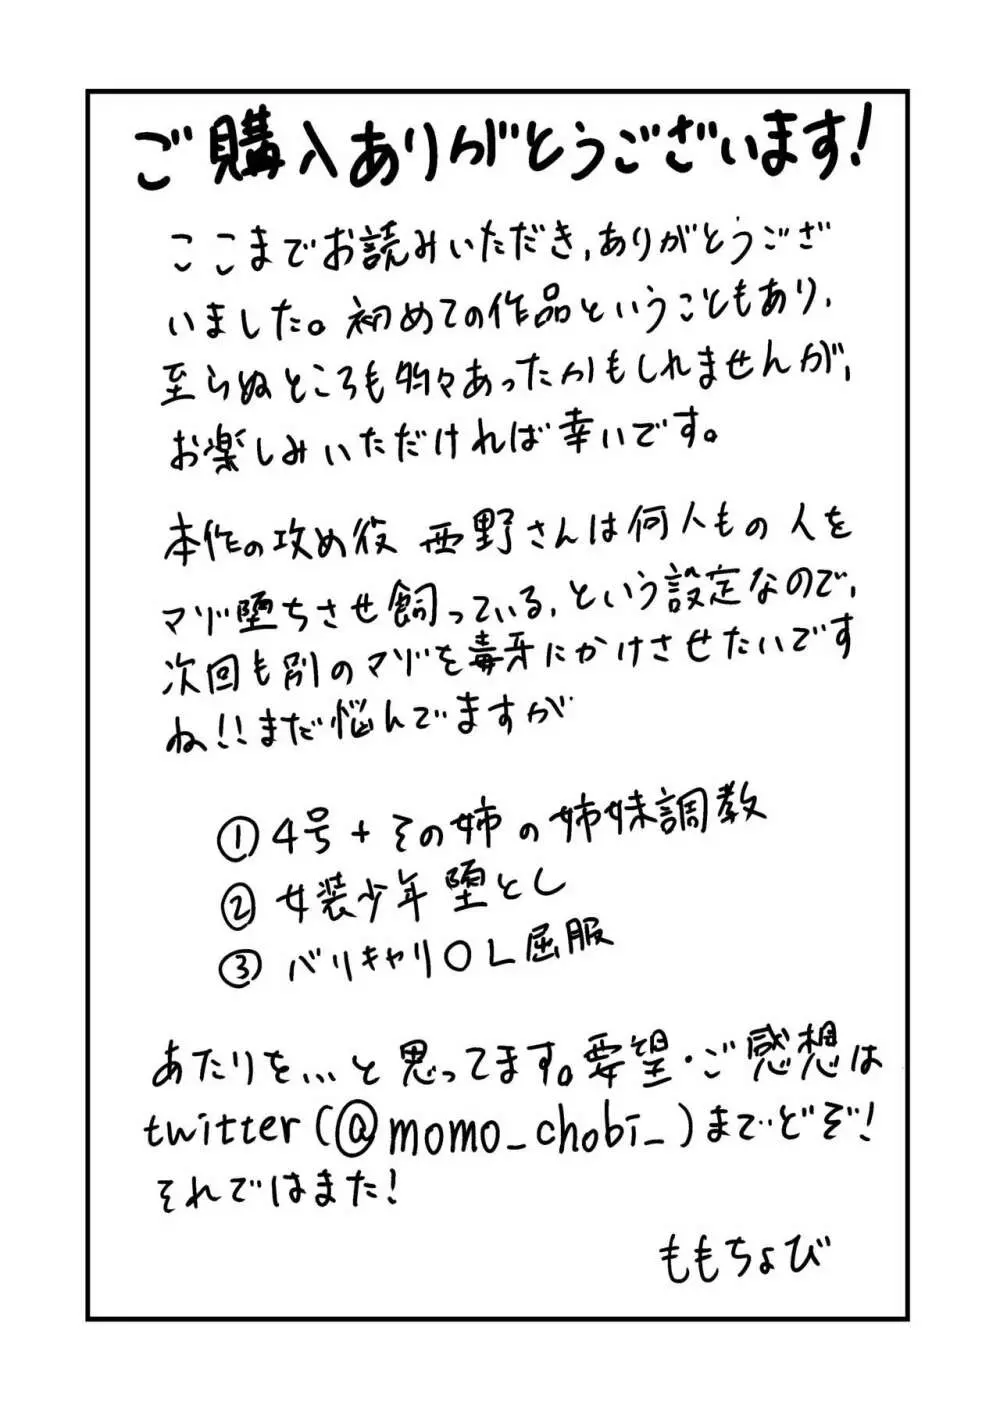 ご購入ありがとうございます!
ここまでお読みいただき,ありがとうござ
いました。初めての作品ということもあり,
至らぬところも多々あったかもしれませんが,
お楽しみいただければ幸いです。
本作の攻め役 西野さんは何人もの人を
マゾ堕ちさせ飼っている,という設定なので,
次回も別のマゾを毒牙にかけさせたいです
ね!!まだ悩んでますが
①4号+その姉の姉妹調教
②女装少年堕とし
③バリキャリOL屈服
あたりを...と思ってます。要望・ご感想は
twitter(@momo_chobi_)までどぞ!
それではまた!
ももちょび